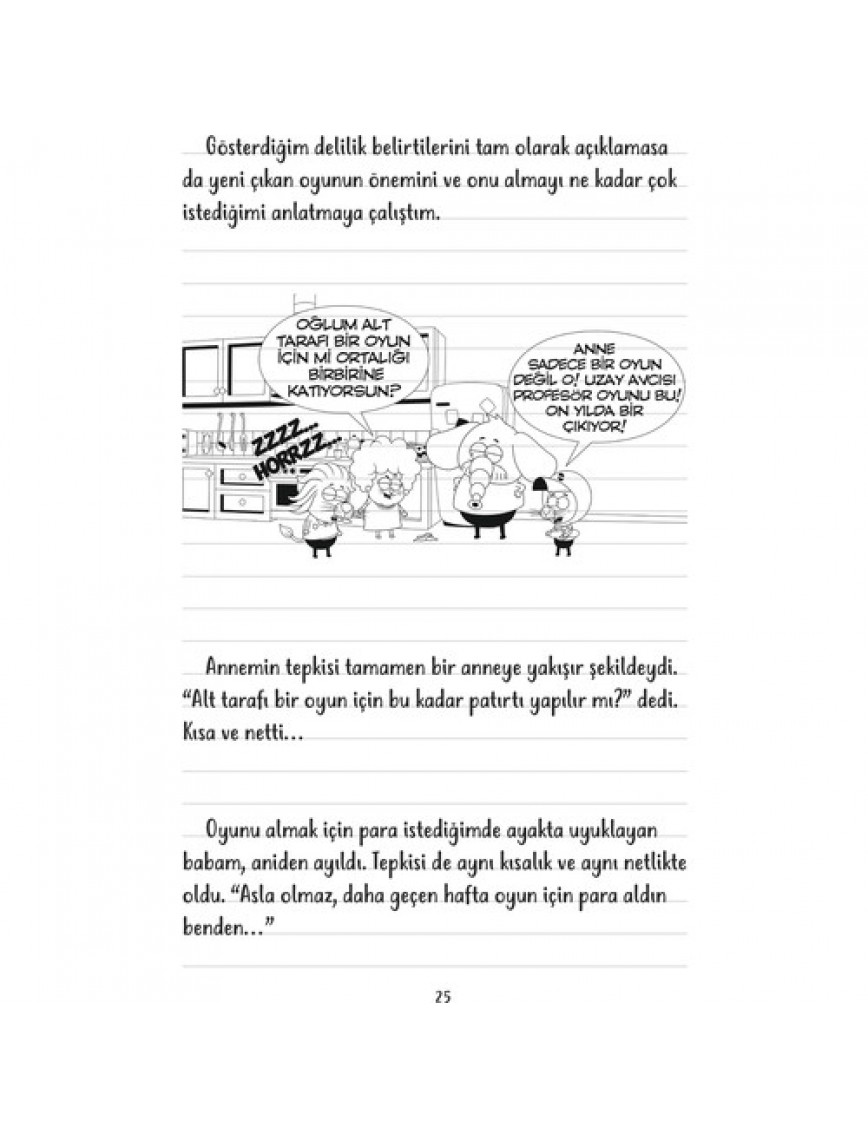 Gösterdiğim delilik belirtilerini tam olarak açıklamasa
da yeni çıkan oyunun önemini ve onu almayı ne kadar çok
istediğimi anlatmaya çalıştım.
OĞLUM ALT
TARAFI BİR OYUN
İÇİN Mİ ORTALIĞI
BİRBİRİNE
KATIYORSUN?
ANNE
SADECE BİR OYUN
DEĞİL O! UZAY AVCISI
PROFESÖR OYUNU BU!
ON YILDA BİR
ÇIKIYOR!
ZZZZ...
HORRZZ...
Annemin tepkisi tamamen bir anneye yakışır şekildeydi.
“Alt tarafı bir oyun için bu kadar patırtı yapılır mı?” dedi.
Kısa ve netti...
Oyunu almak için para istediğimde ayakta uyuklayan
babam, aniden ayıldı. Tepkisi de aynı kısalık ve aynı netlikte
oldu. “Asla olmaz, daha geçen hafta oyun için para aldın
benden...”
25